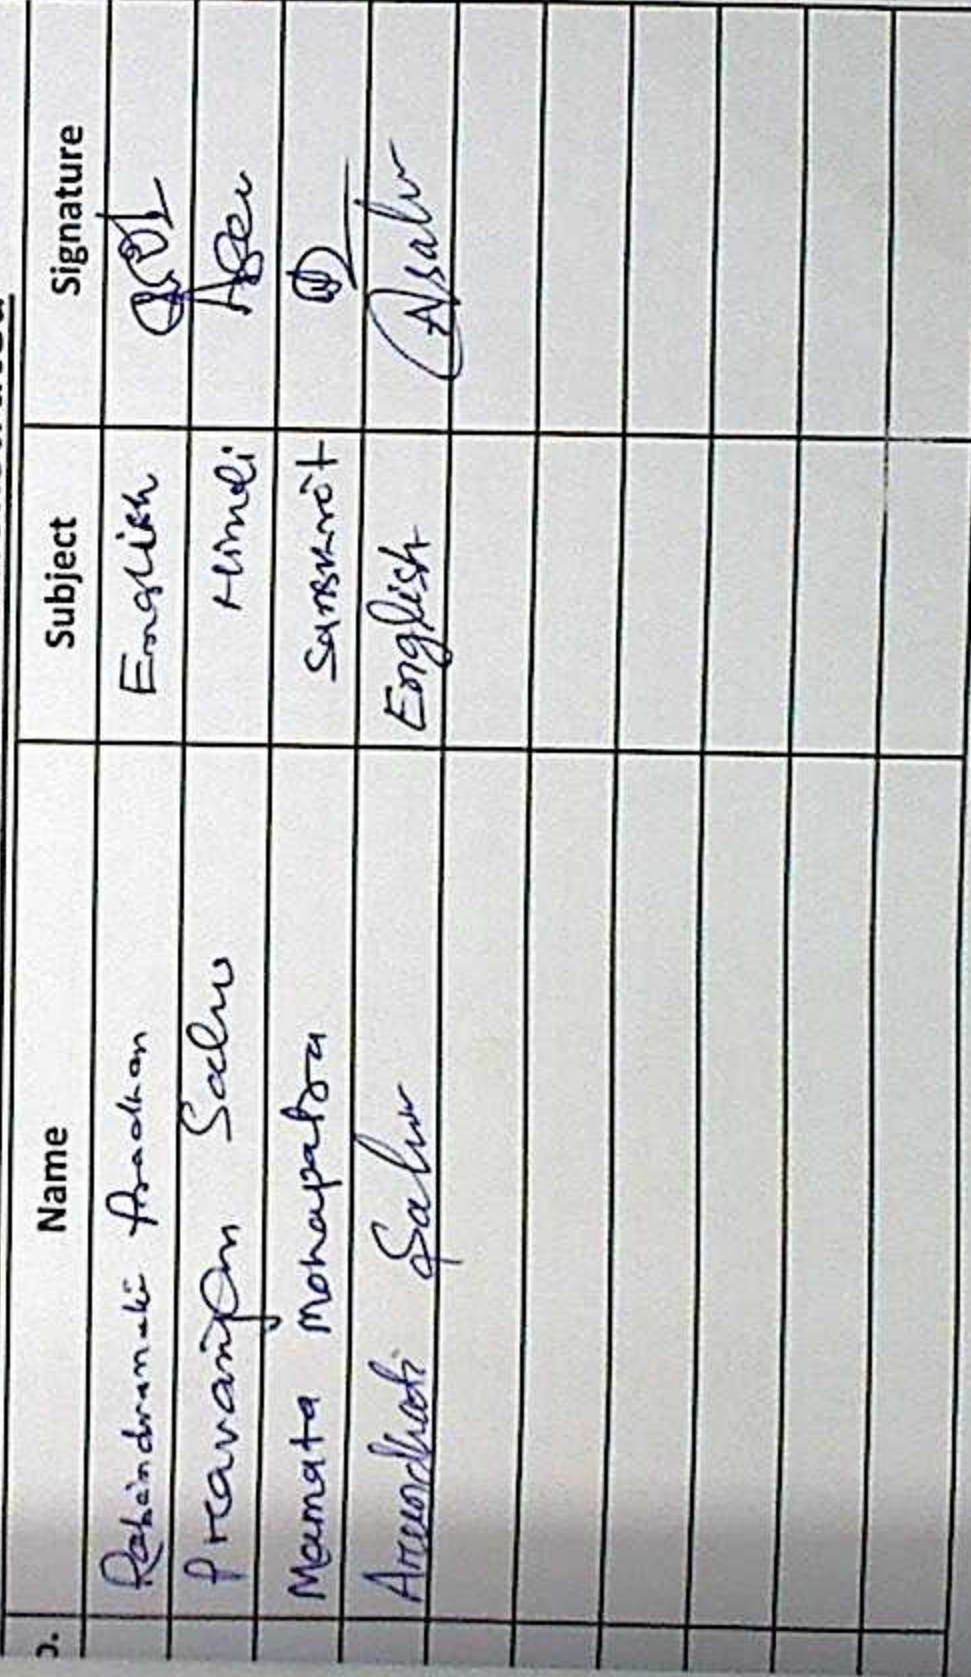 Name Subject Signature
Rabindranath Pradhan English
Pravanjan Sahu Hindi
Mamata Mohapatra Sanskrit
Arundhati Sahu English Asahu